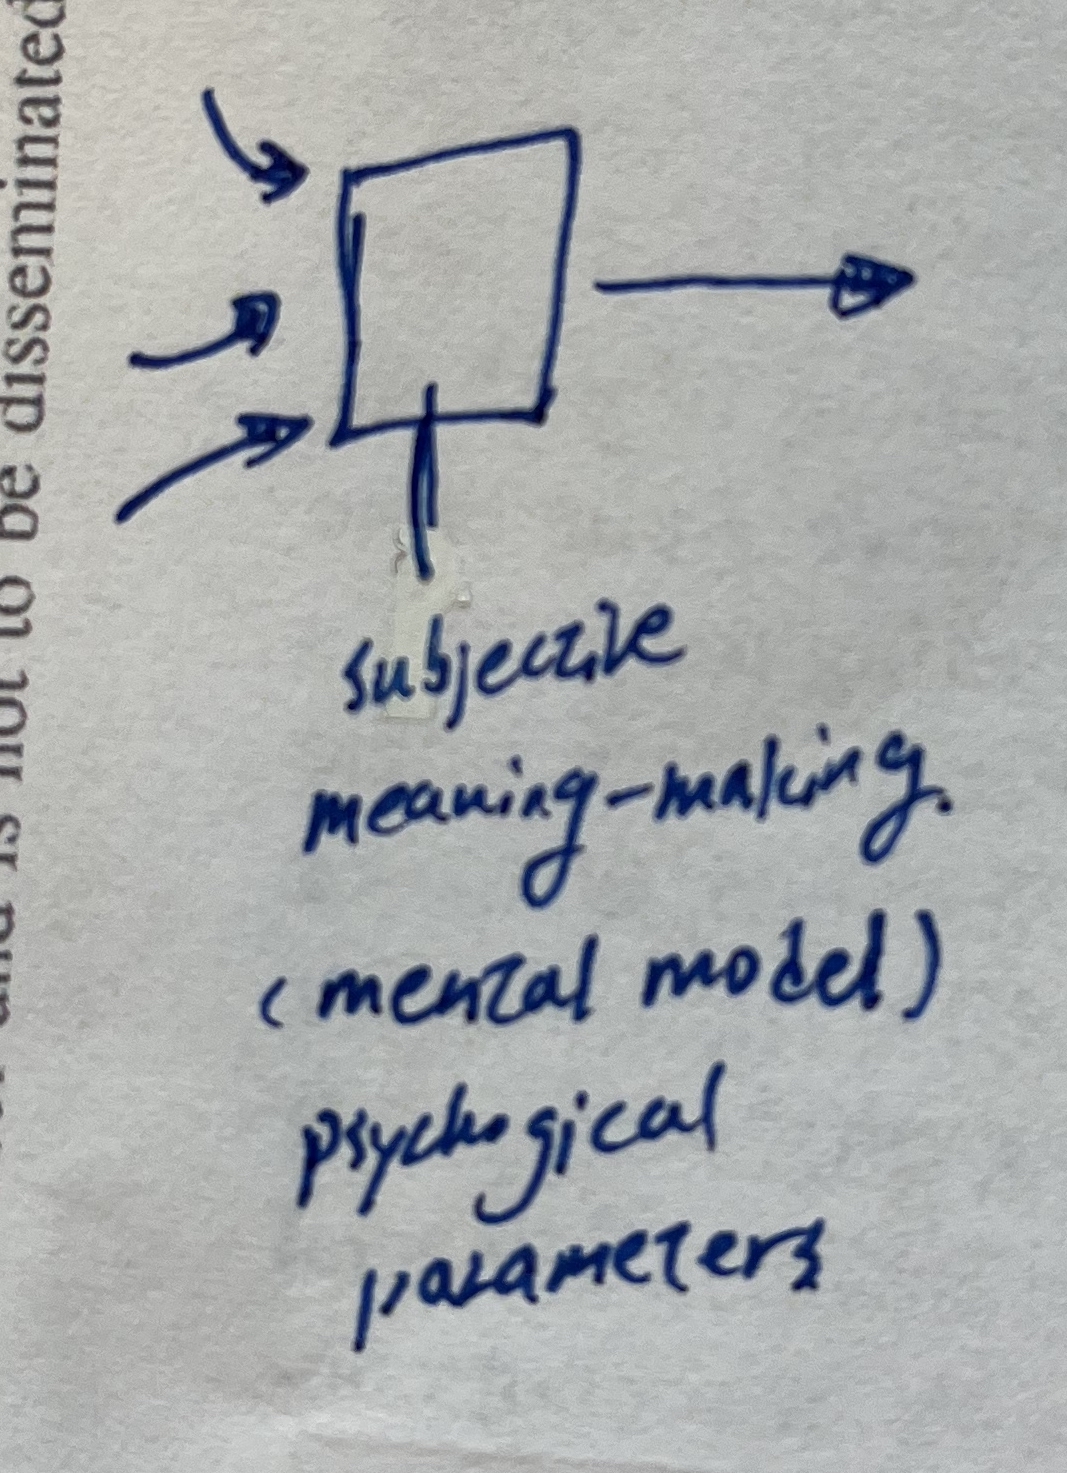 and is not to be disseminated
subjective
meaning-making.
(mental model)
psychogical
parameters